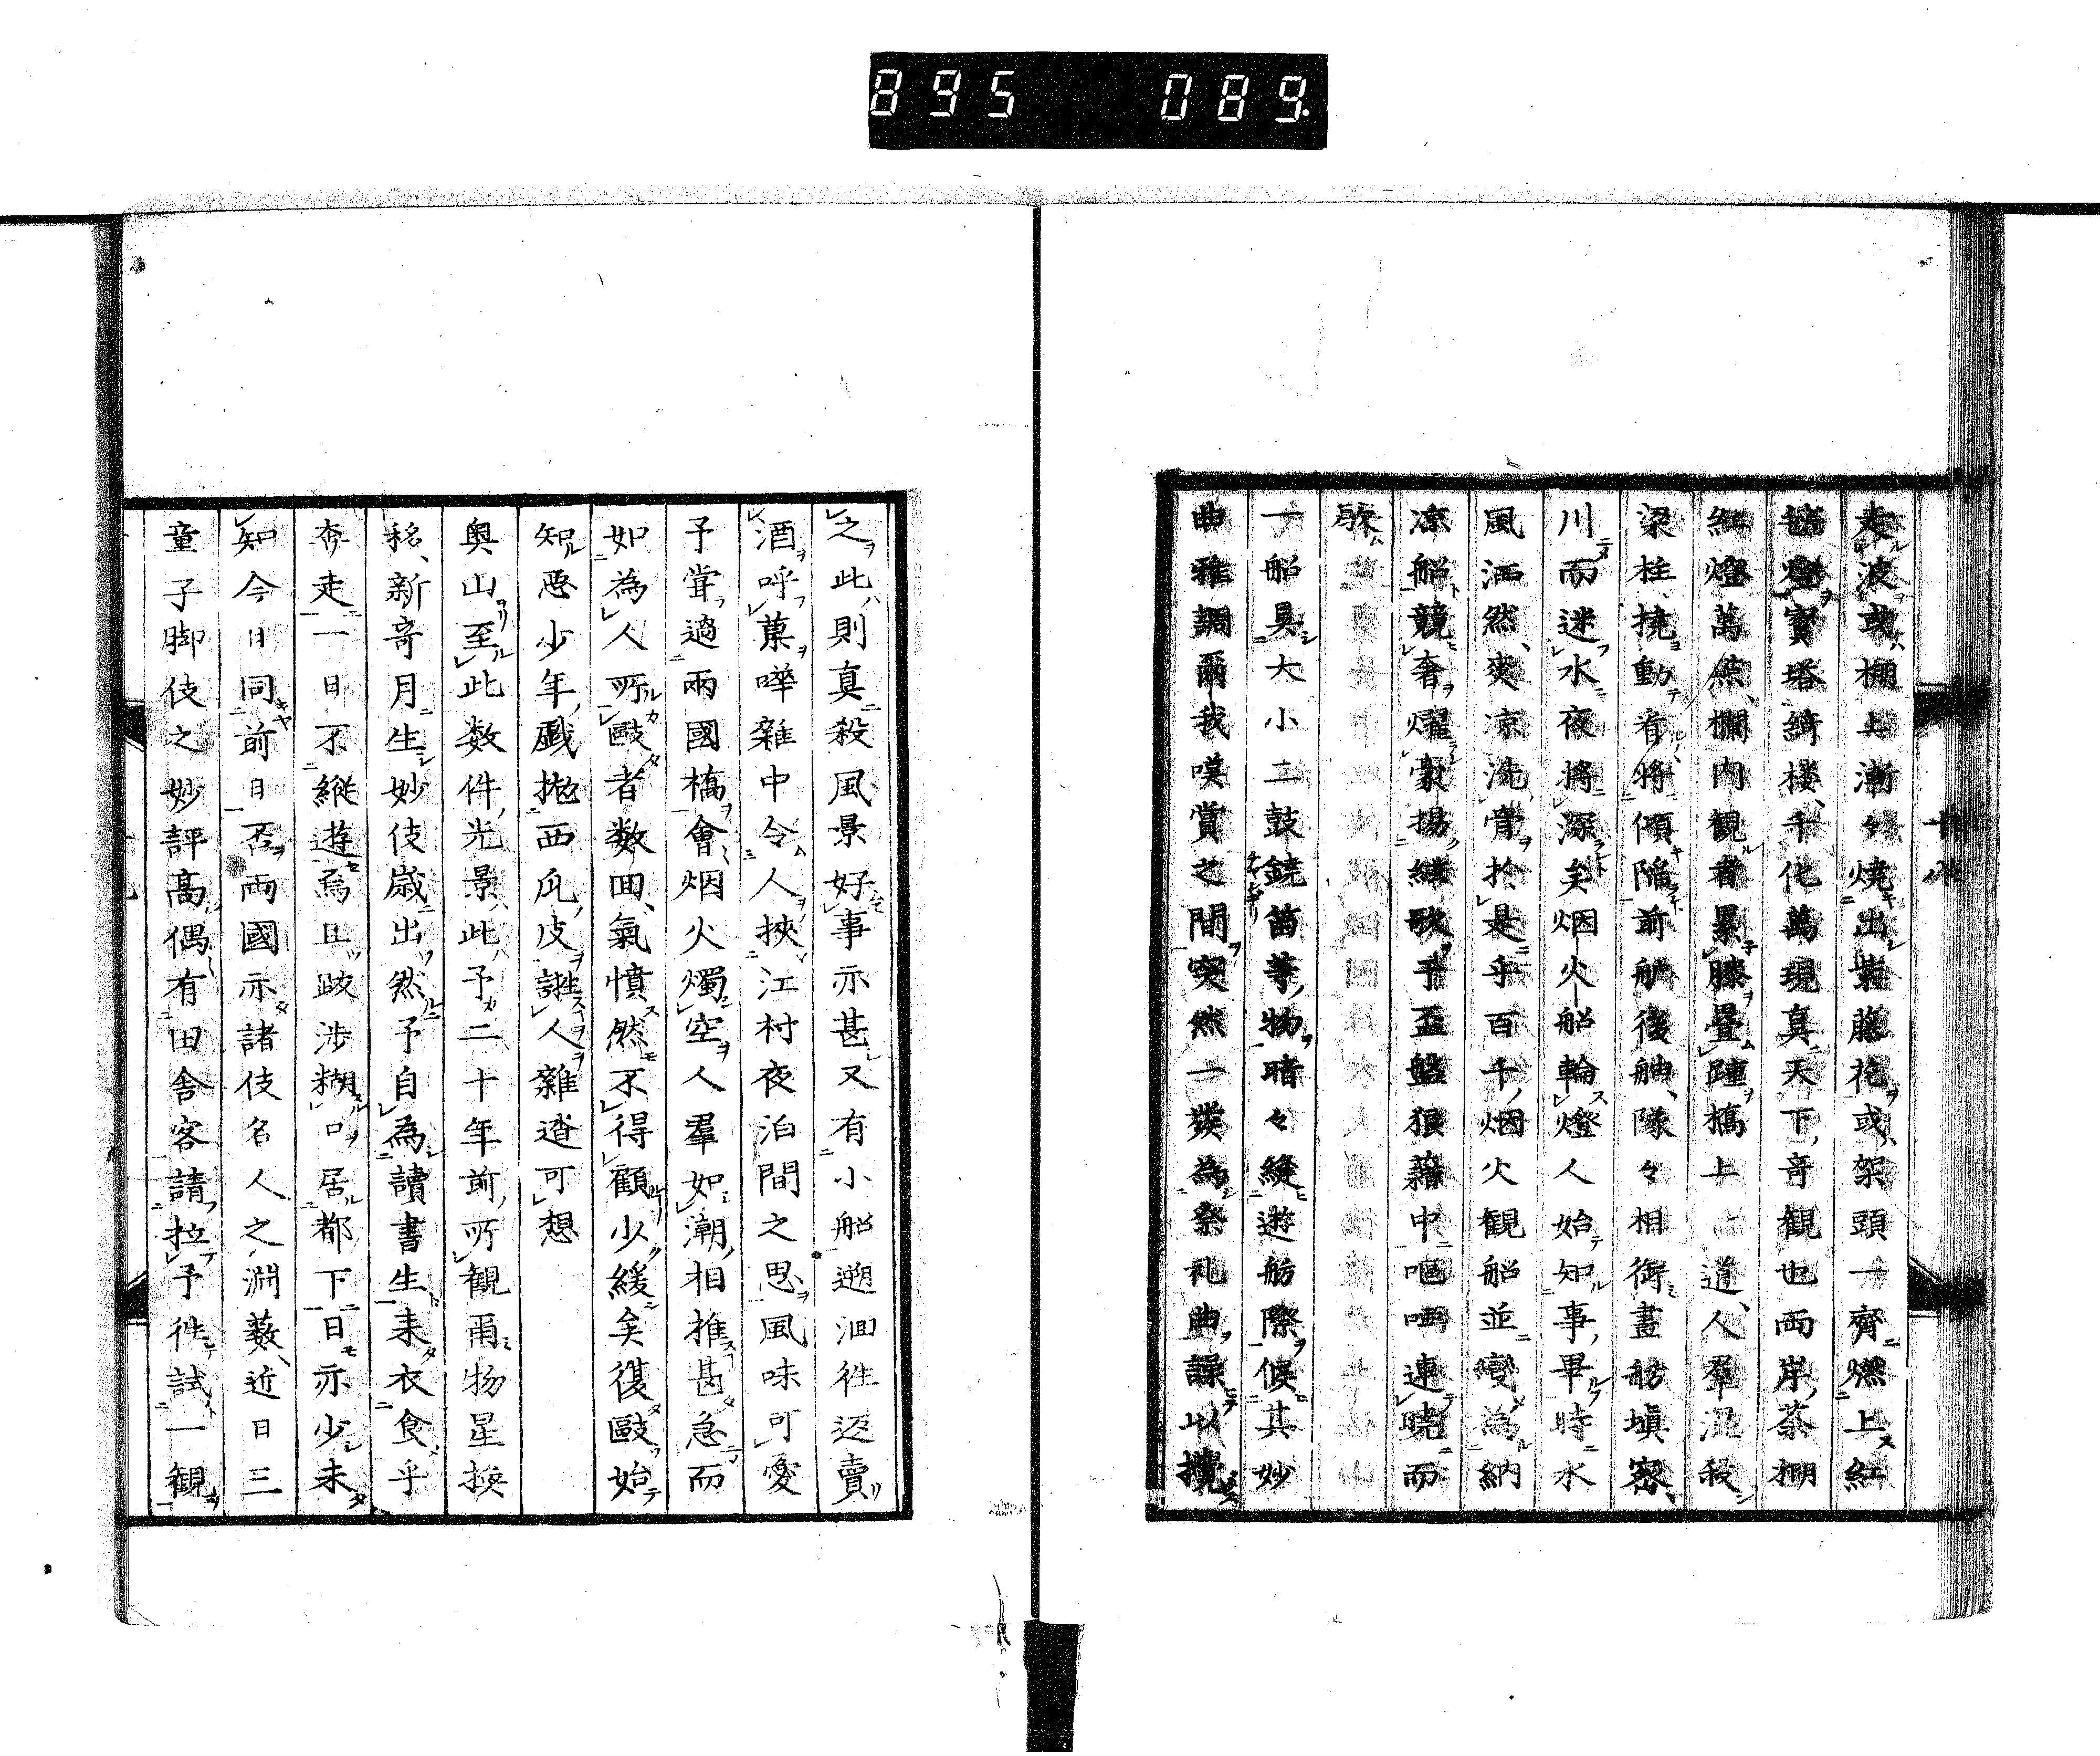 895 089.
走波或棚上漸々燒出紫藤花或架頭一齊燃上紅
燈寳塔綺樓千化萬現真天下奇觀也両岸茶棚
紅燈萬点欄内觀者累膝疊踵橋上一道人羣混殺
梁柱撓動看将傾陥前舻後舳隊々相銜畫舫塡密
川而迷水夜将深矣烟火船輪燈人始知事畢時水
風洒然爽凉洗骨於是乎百千烟火觀船並變為納
凉船競奢燿豪揚絃歌于盃盤狼藉中嘔啞連曉而
歇
一船具大小二鼓鐃笛等物暗々縫遊舫際候其妙
曲雅調爾我嘆賞之間突然一發為祭礼曲譟以攪
之此則真殺風景好事亦甚又有小船遡洄徃返賣
酒呼菓嘩雜中令人挾江村夜泊間之思風味可愛
予甞過兩國橋會烟火燭空人羣如潮相推甚急而
如為人所毆者数回氣憤然不得顧少緩矣復毆始
知惡少年戲抛西瓜皮誑人雜遝可想
奥山至此数件光景此予二十年前所觀爾物星換
移新竒月生妙伎歳出然予自為讀書生耒衣食乎
奔走一日不縱遊焉且跋渉糊口居都下日亦少未
知今日同前日否両國亦諸伎名人之淵藪近日三
童子脚伎之妙評高偶有田舎客請拉予徃試一觀